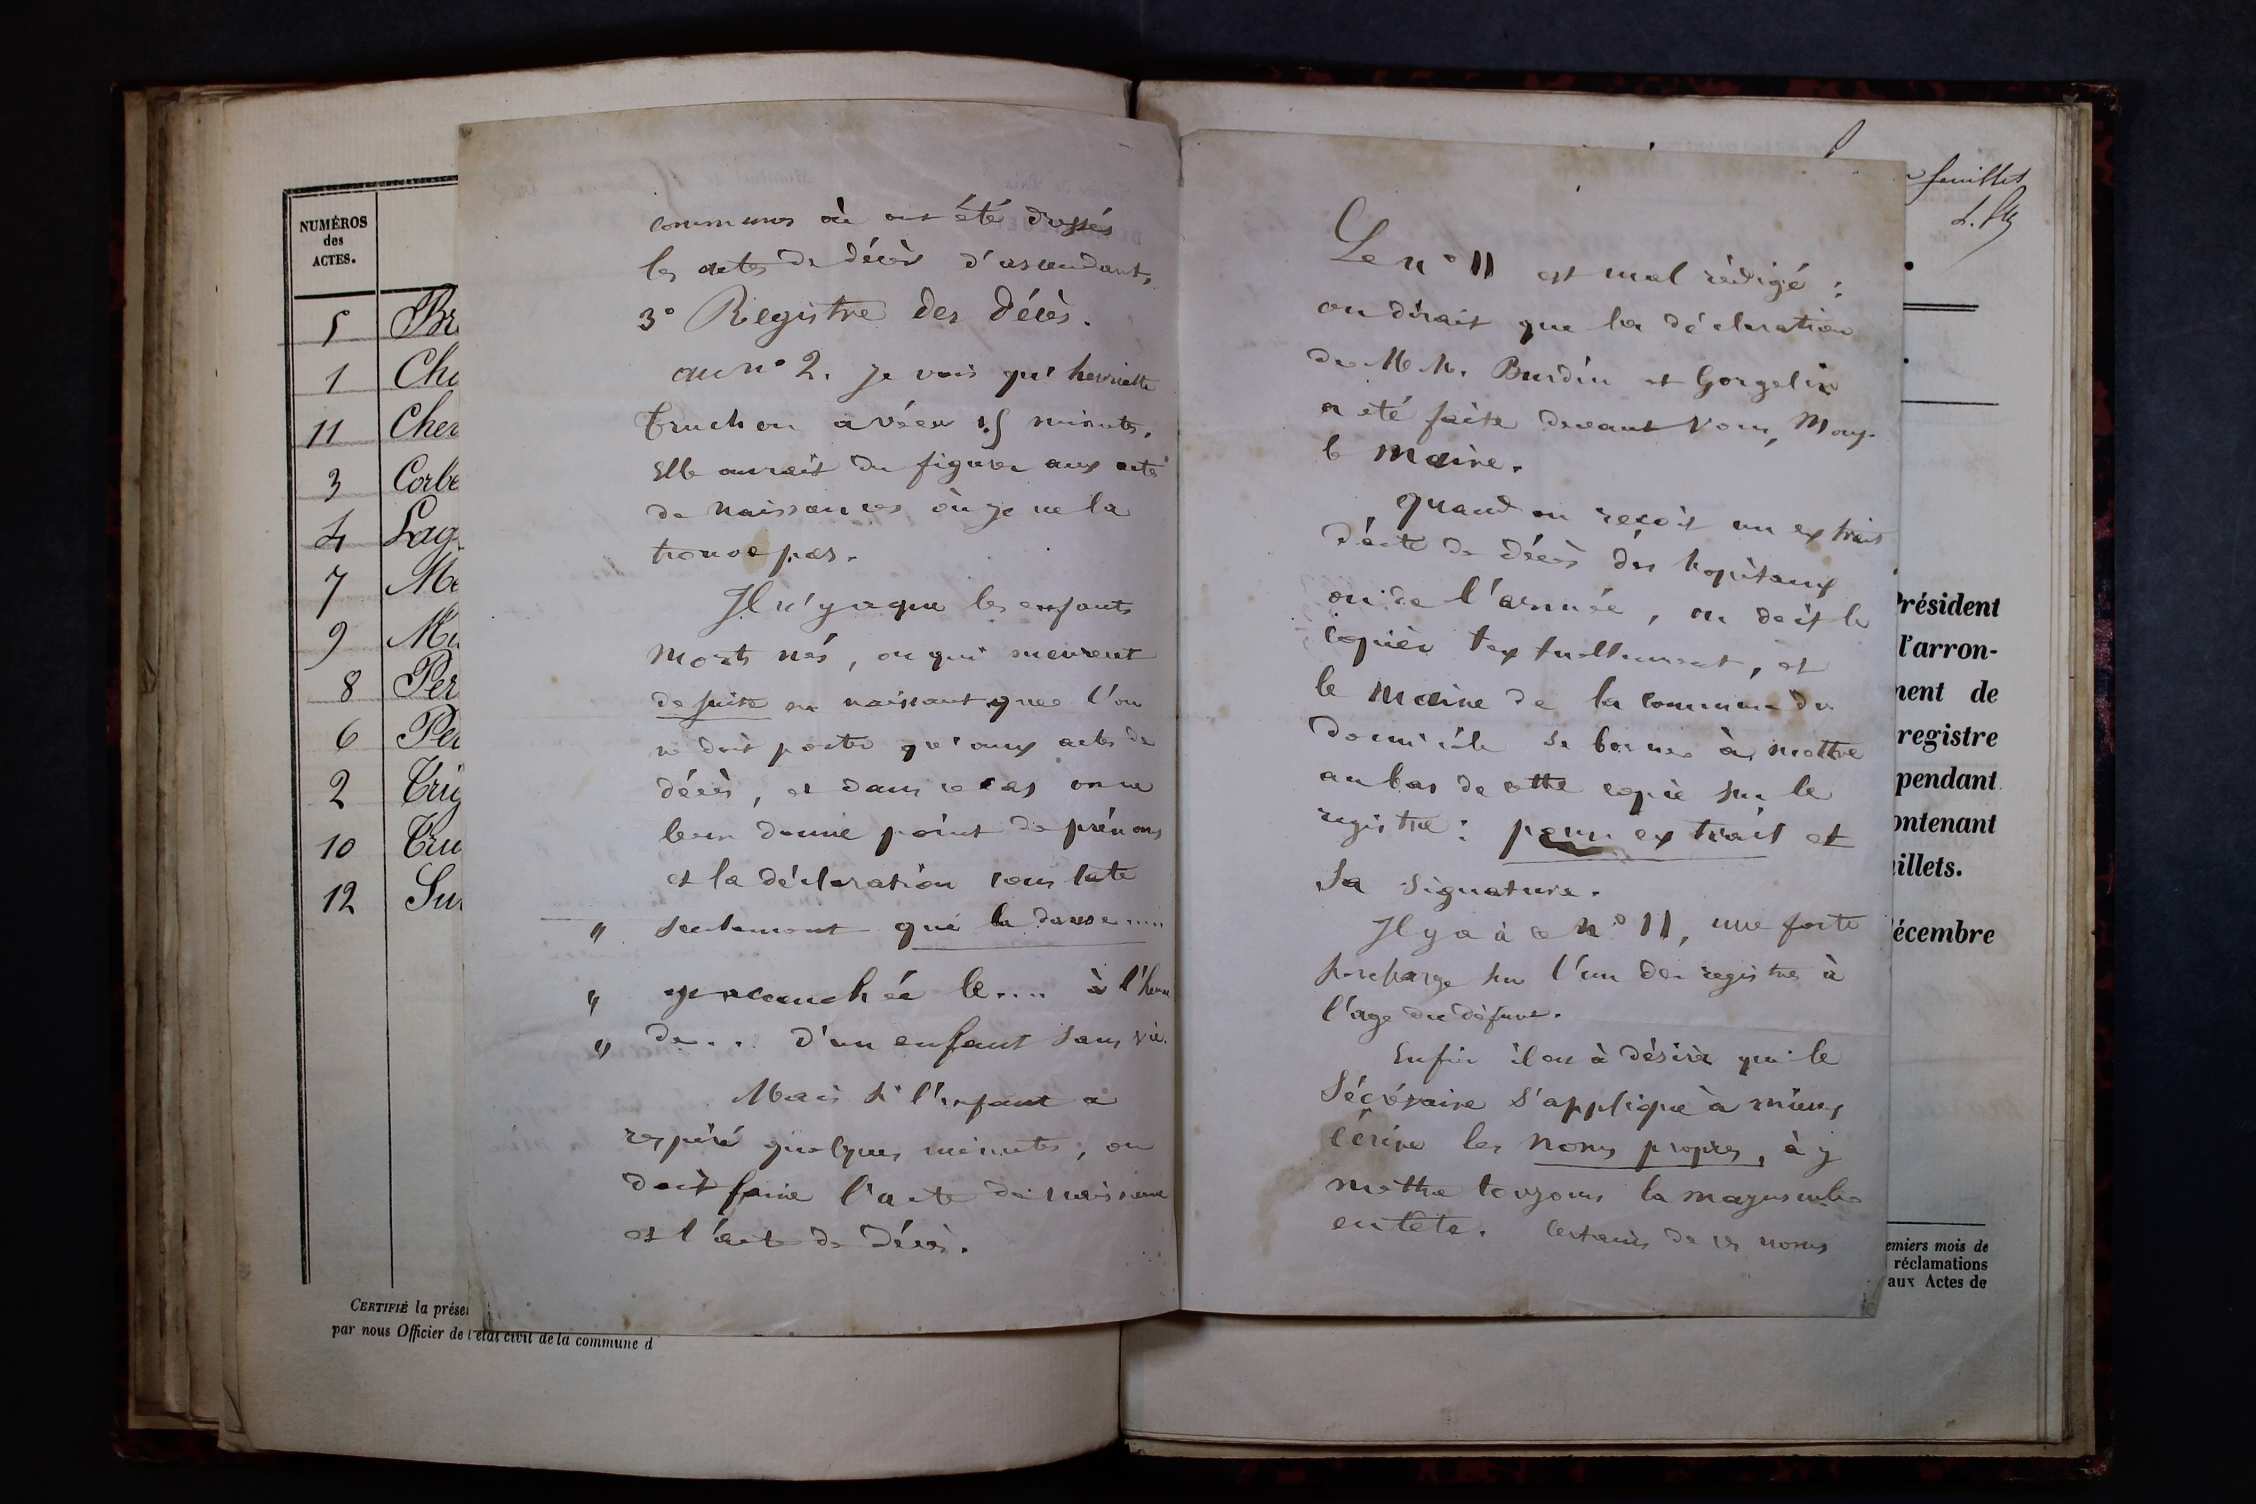 NUMÉROS
des
ACTES.
5 Br
1 Che
11 Cher
3 Corbe
4 Lag
7 Me
9 Mu
8 Per
6 Per
2 Trig
10 Tru
12 Sur
CERTIFIÉ la prése
par nous Officier de l'état civil de la commune d
communes où ont été dressés
les actes de décès d'ascendants,
3° Registre des décès.
au n° 2. je vois qu'henriette
Truchon a vécu 15 minutes.
Elle aurait du figurer aux actes
de naissances où je ne la
trouve pas.
Il n'y a que les enfants
morts nés, ou qui meurent
de suite en naissant que l'on
ne doit porter qu'aux actes de
décès, et dans ce cas on ne
leur donne point de prénoms
et la déclaration constate
" seulement que la dame .....
" accouchée le .... à l'heure
" de ... d'un enfant sans vie.
Mais si l'enfant a
respiré quelques minutes, on
doit faire l'acte de naissance
et l'acte de décès.
feuillets
Le n° 11 est mal rédigé :
on dirait que la déclaration
de M M. Burdin et Gorgelin
a été faite devant vous, Mons.
le Maire.
quand on reçoit un extrait
d'acte de décès des hopitaux
ou de l'armée, on doit le
copier textuellement, et
le Maire de la commune du
domicile se borne à mettre
au bas de cette copie sur le
registre : pour extrait et
sa signature.
Il y a à ce n° 11, une forte
surcharge sur l'un des registres à
l'age du défunt.
Enfin il est à désirer que le
Sécrétaire s'applique à mieux
écrire les noms propres, à y
mettre toujours la majuscule
en tête. Certains de ces noms
Président
l'arron-
nent de
registre
pendant
ontenant
illets.
écembre
emiers mois de
réclamations
aux Actes de